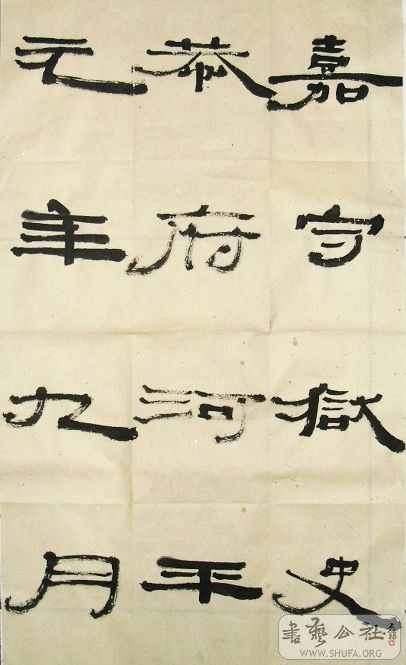 嘉守獄史
恭府河平
元年九月
書藝公社
WWW.SHUFA.ORG